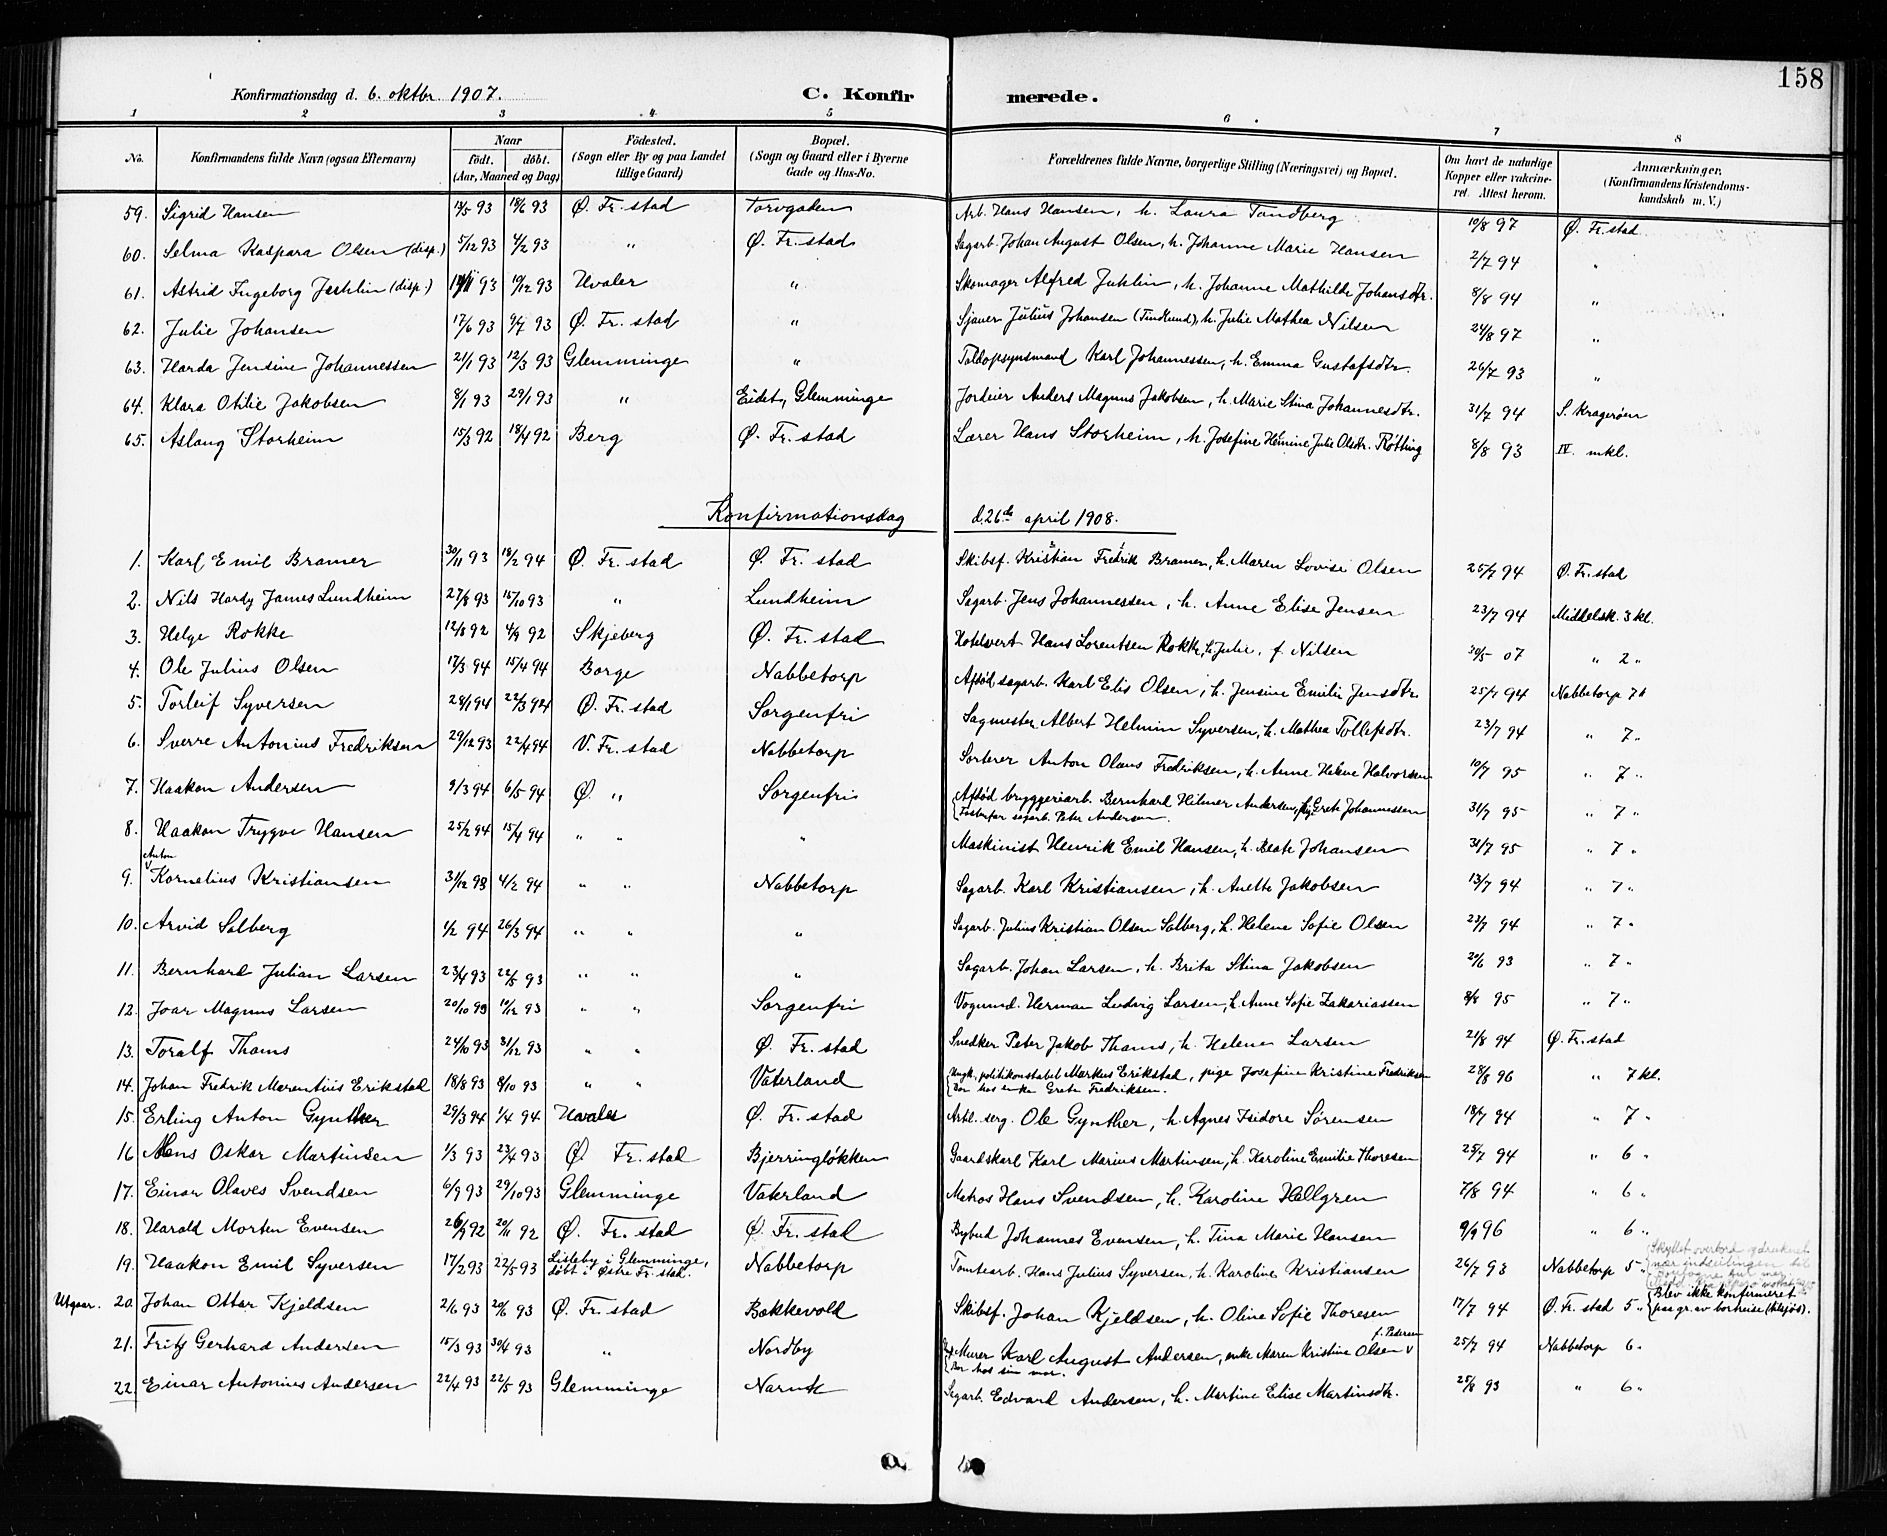 158
Konfirmationsdag d. 6. oktbr. 1907. C. Konfirmerede.
1 2 3 4 5 6 7 8
No. Konfirmandens fulde Navn (ogsaa Efternavn) Naar født. døbt. (Aar, Maaned og Dag) Fødested. (Sogn eller By og paa Landet tillige Gaard) Bopæl. (Sogn og Gaard eller i Byerne Gade og Hus-No. Forældrenes fulde Navne, borgerlige Stilling (Næringsvei) og Bopæl. Om havt de naturlige Kopper eller vakcineret. Attest herom. Anmærkninger. (Konfirmandens Kristendomskundskab m. V.)
59. Sigrid Hansen 93 93 Ø. Fr. stad Torvgaden Arb. Hans Hansen, h. Laura Tandberg 10/8 97 Ø. Fr. stad
60. Selma Kaspara Olsen (disp.) 5/12 93 4/2 93 " Ø. Fr. stad Sagarb. Johan August Olsen, h. Johanne Marie Hansen 2/7 94 "
61. Astrid Ingeborg Juhlin (disp.) 93 10/12 93 Hvaler " Skomager Alfred Juhlin, h. Johanne Mathilde Johansdtr. 8/8 94 "
62. Julie Johansen 17/6 93 9/7 93 Ø. Fr. stad " Sjauer Julius Johansen (Tindlund), h. Julie Mathea Nilsen 24/8 97 "
63. Harda Jensine Johannessen 21/1 93 12/3 93 Glemminge " Toldopsynsmand Karl Johannessen, h. Emma Gustafsdtr. 26/7 93 "
64. Klara Otilie Jakobsen 8/1 93 29/1 93 " Eidet, Glemminge Jordeier Anders Magnus Jakobsen, h. Marie Stina Johannesdtr. 31/7 94 S. Kragerøen
65. Aslaug Storheim 15/3 92 18/4 92 Berg Ø. Fr. stad Lærer Hans Storheim, h. Josefine Hemine Julie Olsdtr. Røtting 8/8 93 IV. mkl.
Konfirmationsdag d. 26de april 1908.
1. Karl Emil Bramer 30/11 93 18/2 94 Ø. Fr. stad Ø. Fr. stad Skibsf. Kristian Fredrik Bramer, h. Maren Lovise Olsen 25/7 94 Ø. Fr. stad
2. Nils Hardy James Lundheim 27/8 93 15/10 93 " Lundheim Sagarb. Jens Johannessen, h. Anne Elise Jensen 23/7 94 Middelsk. 3 kl.
3. Helge Rokke 12/8 92 4/9 92 Skjeberg Ø. Fr. stad Hotelvert Hans Lorentsen Rokke, h. Julie, f. Nilsen 30/5 07 " 2 "
4. Ole Julius Olsen 17/3 94 15/4 94 Borge Nabbetorp Afdød sagarb. Karl Elis Olsen, h. Jensine Emilie Jensdtr. 25/7 94 Nabbetorp 7 kl
5. Torleif Syversen 28/1 94 22/3 94 Ø. Fr. stad Sorgenfri Sagmester Albert Helmin Syversen, h. Mathea Tollefsdtr. 23/7 94 " 7 "
6. Sverre Antonius Fredriksen 29/12 93 22/4 94 V. Fr. stad Nabbetorp Sorterer Anton Olaus Fredriksen, h. Anne Helene Halvorsen 10/7 95 " 7 "
7. Haakon Andersen 9/3 94 6/5 94 Ø. " Sorgenfri Afdød bryggeriarb. Bernhard Hilmer Andersen, Grete Johannessen 31/7 95 " 7 "
Fosterfar sagarb. Peter Andersen.
8. Haakon Trygve Hansen 25/2 94 15/4 94 " " " Maskinist Henrik Emil Hansen, h. Beate Johansen 31/7 95 " 7 "
9. Anton Kornelius Kristiansen 31/12 93 4/2 94 " " Nabbetorp Sagarb. Karl Kristiansen, h. Anette Jakobsen 13/7 94 " 7 "
10. Arvid Solberg 1/2 94 26/3 94 " " " Sagarb. Julius Kristian Olsen Solberg, h. Helene Sofie Olsen 23/7 94 " 7 "
11. Bernhard Julian Larsen 23/4 93 22/5 93 " " " Sagarb. Johan Larsen, h. Brita Stina Jakobsen 20/6 93 " 7 "
12. Joar Magnus Larsen 20/10 93 10/12 93 " " Sorgenfri Vognmd. Herman Ludvig Larsen, h. Anne Sofie Zakariassen 8/8 95 " 7 "
13. Toralf Thams 24/10 93 31/12 93 " " Ø. Fr. stad Snedker Peter Jakob Thams, h. Helene Larsen 21/8 94 Ø. Fr. stad
14. Johan Fredrik Marentius Erikstad 18/8 93 8/10 93 " " Vaterland Ungk. politikonstabel Markus Erikstad, pige Josefine Kristine Fredriksen 28/8 96 " 7 kl.
Bor hos enke Grete Fredriksen.
15. Erling Anton Gynther 29/3 94 1/4 94 Hvaler Ø. Fr. stad Artl. serg. Ole Gynther, h. Agnes Isidore Sørensen 18/7 94 " 7 "
16. Mons Oskar Martinsen 1/3 93 23/4 93 Ø Fr. stad Bjerringløkken Gaardskarl Karl Marius Martinsen, h. Karoline Emilie Thoresen 25/7 94 " 6 "
17. Einar Olaves Svendsen 6/9 93 29/10 93 Glemminge Vaterland Matros Hans Svendsen, h. Karoline Hallgren 7/8 94 " 6 "
18. Harald Morten Evensen 26/9 92 20/11 92 Ø. Fr. stad Ø. Fr. stad Bybud Johannes Evensen, h. Tina Marie Hansen 9/9 96 " 6 "
19. Haakon Emil Syversen 17/2 93 22/5 93 Lisleby i Glemminge, døbt i Østre Fr. stad. Nabbetorp Tomtearb. Hans Julius Syversen, h. Karoline Kristiansen 26/7 93 Nabbetorp 5 " Skyllet overbord og druknet
Utgaar. 20. Johan Ottar Kjeldsen 2/6 93 20/6 93 Ø. Fr. stad Bakkevold Skibsf. Johan Kjeldsen, h. Oline Sofie Thoresen 17/7 94 Ø. Fr. stad 5 " Blev ikke konfirmeret paa gr. av bortreise (tilsjøs).
21. Fritz Gerhard Andersen 15/3 93 30/4 93 " Nordby Murer Karl August Andersen, enke Maren Kristine Olsen f. Pedersen 25/7 94 Nabbetorp 6 "
Bor hos sin mor.
22. Einar Antonius Andersen 22/4 93 22/5 93 Glemminge Narvik Sagarb. Edvard Andersen, h. Martine Elise Martinsdtr. 25/8 93 " 6 "